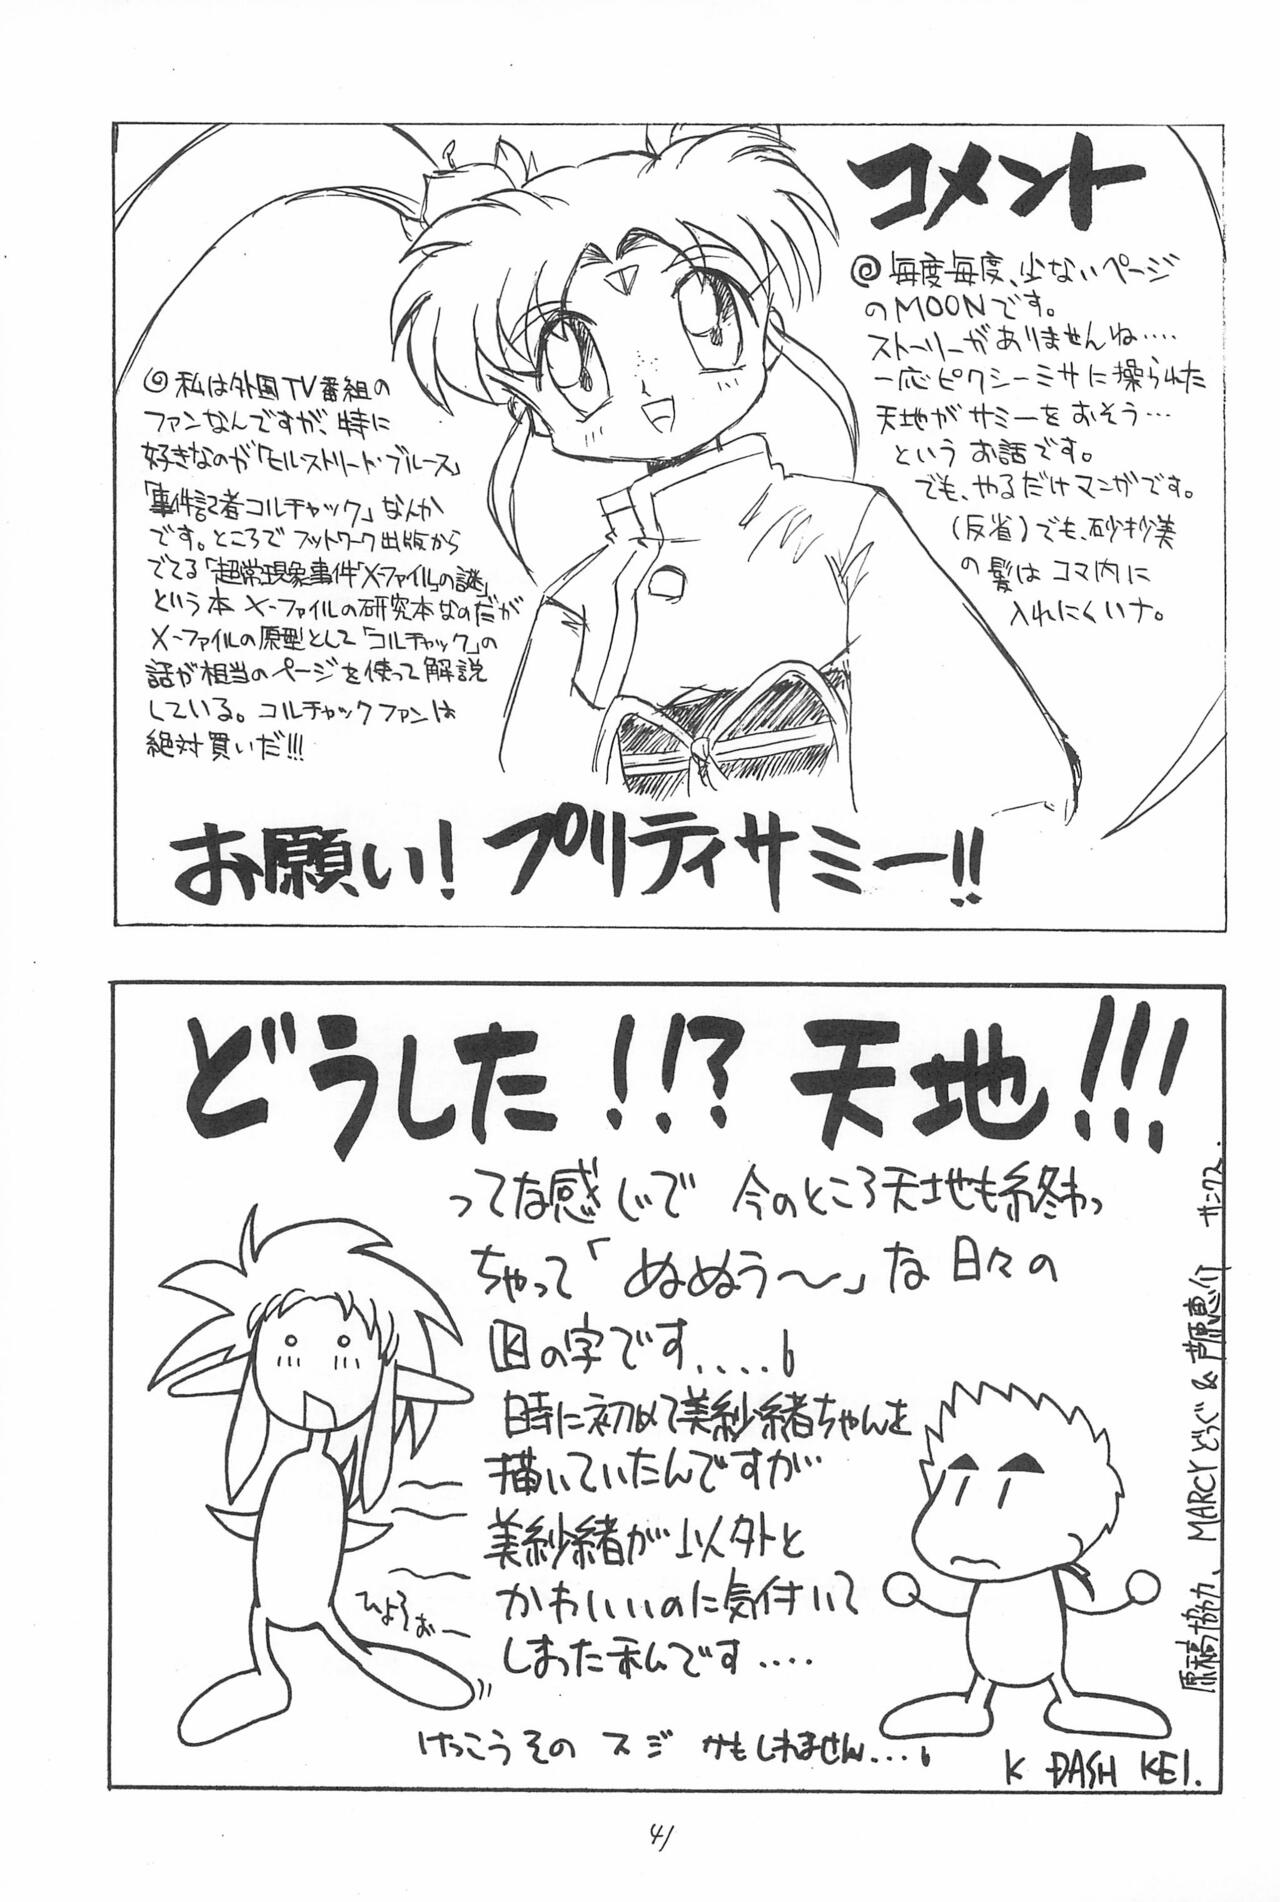 コメント
◎毎度毎度、少ないページ
のMOONです。
ストーリーがありませんね‥‥
一応ピクシーミサに操られた
天地がサミーをおそう…
という お話です。
でも、やるだけマンガです。
(反省)でも、砂沙美
の髪は コマ内に
入れにくいナ。
◎私は外国TV番組の
ファンなんですが、特に
好きなのが「ヒルストリート・ブルース」
「事件記者コルチャック」なんか
です。ところで フットワーク出版から
でてる「超常現象事件「X-ファイル」の謎」
という本 X-ファイルの研究本なのだが
X-ファイルの原型として「コルチャック」の
話が相当のページを使って解説
している。コルチャックファンは
絶対買いだ!!!
お願い! プリティサミー!!
どうした!!? 天地!!!
ってな感じで 今のところ天地も終わっ
ちゃって「ぬぬぅ〜」な日々の
図の字です....。
時に初めて美紗緒ちゃんを
描いていたんですが
美紗緒が以外と
かわいいのに気付いて
しまった私んです....
ひよろおー
けっこうその スジ かもしれません...。
K DASH KEI.
原稿協力、MARCYどうぐ&芦原恵介 サンクス.
41